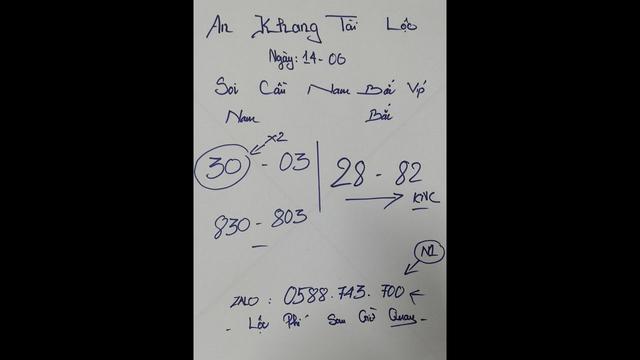 An Khang Tài Lộc
Ngày: 14-06
Soi Cầu Nam Bắc Víp
Nam Bắc
x2
30 - 03
28 - 82
KNC
830 - 803
N1
ZALO: 0588.743.700
- Lộc Phí Sau Giờ Quay -